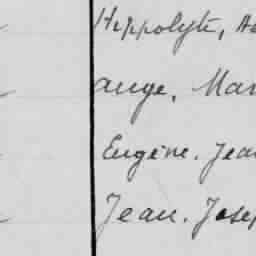 Hippolyte, Au
ange, Mar
Eugène. Jean
Jean. Josep